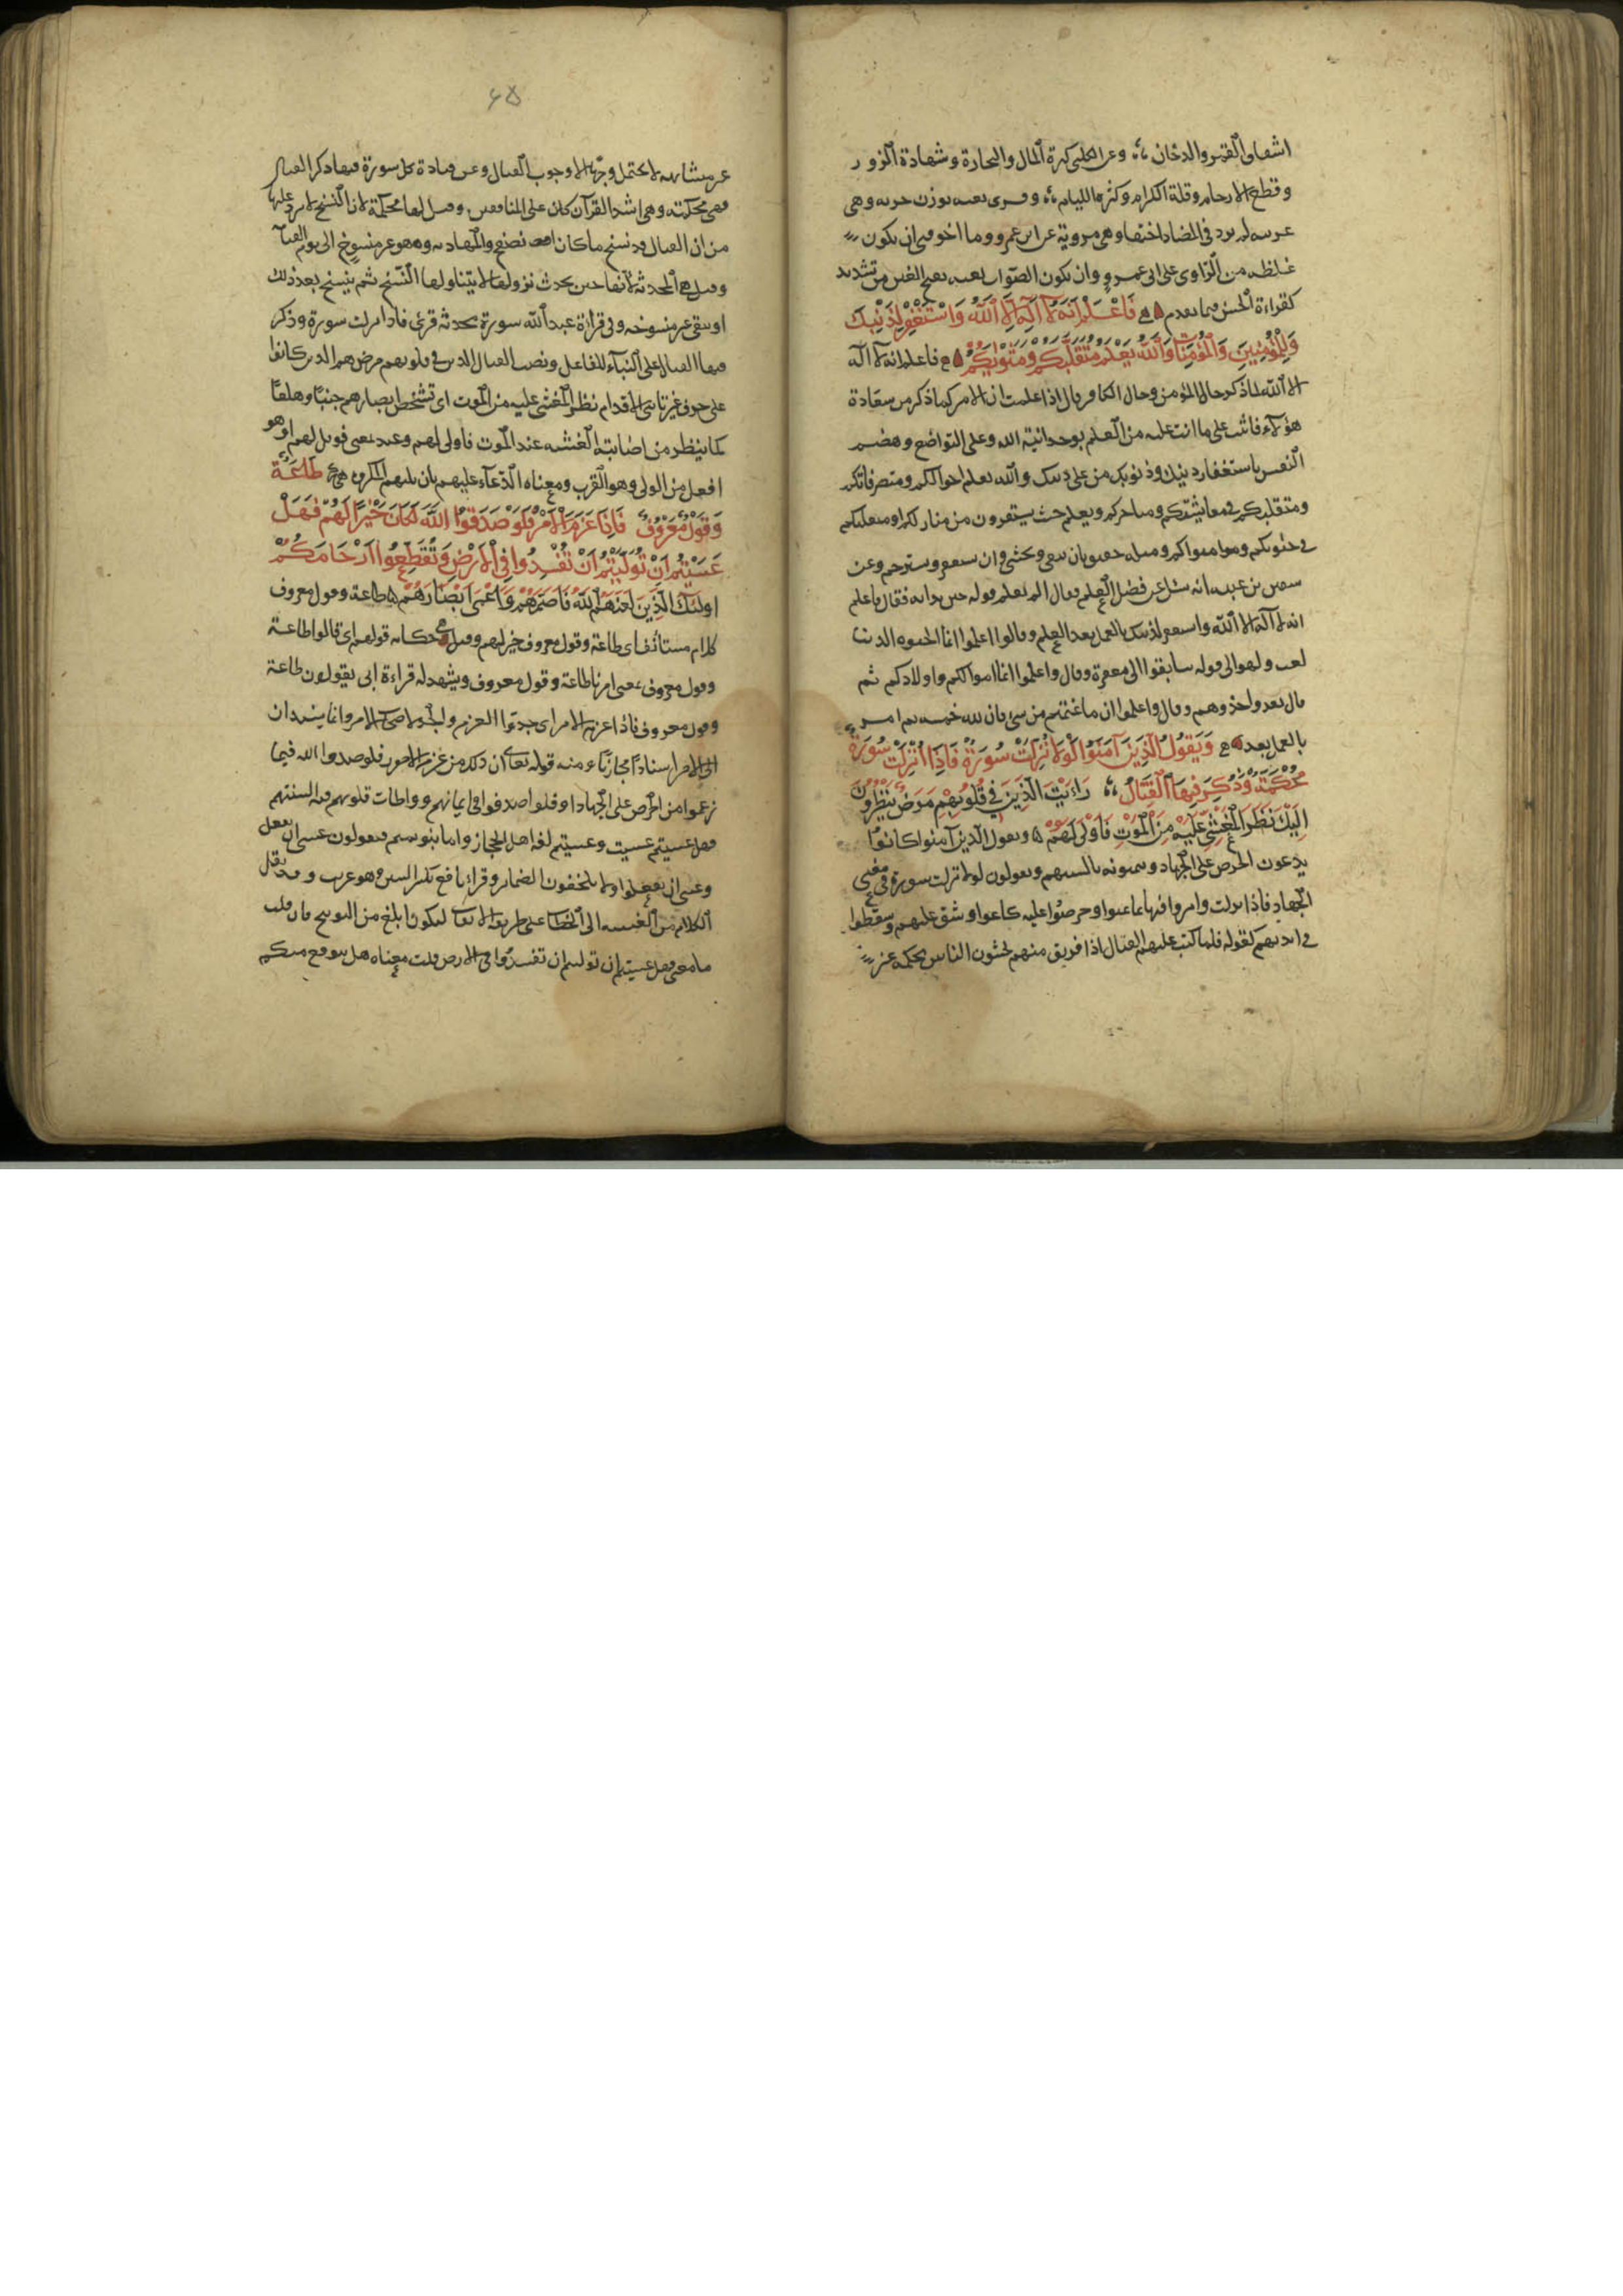 اشقاق القمر والدخان وعن الكلبى كثرة المال والتجارة وشهادة الزور
وقطع الارحام وقلة الكرام وكثرة الليام وقرى بغته بوزن جربه وهى
غريبه لم ترد فى المصادر اختها وهى مروية عن ابى عمرو وما اخوفنى ان يكون
غلطه من الراوى على ابى عمرو وان يكون الصواب بغته بفتح الغين من تشديد
كقراءة الحسن فيما تقدم فَاعْلَمْ اَنَّهُ لَا اِلَهَ اِلَّا اللَّهُ وَاسْتَغْفِرْ لِذَنْبِكَ
وَلِلْمُؤْمِنِينَ وَالْمُؤْمِنَاتِ وَاللَّهُ يَعْلَمُ مُتَقَلَّبَكُمْ وَمَثْوَيكُمْ فاعلم انه لا اله
الا الله لما ذكر حال المؤمن وحال الكافر قال اذا علمت ان الامر كما ذكر من سعادة
هؤلاء فاثبت على ما انت عليه من العلم بوحدانية الله وعلى التواضع وهضم
النفس باستغفار ذنبك وذنوب من على دينك والله يعلم احوالكم ومتصرفاتكم
ومتقلبكم فى معايشكم ومتاجركم ويعلم حيث يستقرون من منازلكم او متقلبكم
فى حيوتكم ومثواكم ومثله حقيق بان يتقى ويخشى وان يستغفر ويسترحم وعن
سفين بن عيينه انه سئل عن فضل العلم فقال الم تعلم قوله حين بدا به فقال فاعلم
انه لا اله الا الله واستغفر لذنبك بالعمل بعد العلم وقالوا اعلموا انما الحيوه الدنيا
لعب ولهو الى قوله سابقوا الى مغفرة وقال واعلموا انما اموالكم واولادكم ثم
قال بعد ولحذوهم وقال واعلموا ان ما غنمتم من شئ فان لله خمسه ثم امر
بالعمل بعد وَيَقُولُ الَّذِينَ آمَنُوا لَوْلَا نُزِّلَتْ سُورَةٌ فَاِذَا اُنْزِلَتْ سُورَةٌ
مُحْكَمَةٌ وَذُكِرَ فِيهَا الْقِتَالُ رَاَيْتَ الَّذِينَ فِى قُلُوبِهِمْ مَرَضٌ يَنْظُرُونَ
اِلَيْكَ نَظَرَ الْمَغْشِىِّ عَلَيْهِ مِنَ الْمَوْتِ فَاَوْلَى لَهُمْ ويقول الذين آمنوا كانوا
يدعون الحرص على الجهاد ويتمنونه بالسنتهم ويقولون لولا نزلت سورة فى معنى
الجهاد فاذا نزلت وامروا فيها بما تمنوا وحرصوا عليه كاعوا وشق عليهم وسقطوا
فى ايديهم كقوله فلما كتب عليهم القتال اذا فريق منهم يخشون الناس محكمه غير
٤٥
غير متشابهه لا تحتمل وجها الا وجوب القتال وعن قتادة كل سورة فيها ذكر القتال
فهى محكمه وهى اشد القرآن كان على المنافقين وقيل لها محكمة لان النسخ لا يرد عليها
من ان القتال قد نسخ ما كان من الصفح والمهادنه وهو غير منسوخ الى يوم القيامه
وقيل هى المحدثة لانها حين يحدث نزولها لا يتناولها النسخ ثم ينسخ بعد ذلك
او تبقى غير منسوخه وفى قراءة عبد الله سورة محدثه قرئ فاذا نزلت سورة وذكر
فيها القتال على البناء للفاعل ونصب القتال الذين فى قلوبهم مرض هم الذين كانوا
على حرف غير ثابتى الاقدام نظر المغشى عليه من الموت اى تشخص ابصارهم جبنا وهلعا
كما ينظر من اصابته الغشيه عند الموت فاولى لهم وعيد بمعنى فويل لهم وهو
افعل من الولى وهو القرب ومعناه الدعاء عليهم بان يليهم المكروه طَاعَةٌ
وَقَوْلٌ مَعْرُوفٌ فَاِذَا عَزَمَ الْاَمْرُ فَلَوْ صَدَقُوا اللَّهَ لَكَانَ خَيْرًا لَهُمْ فَهَلْ
عَسَيْتُمْ اِنْ تَوَلَّيْتُمْ اَنْ تُفْسِدُوا فِى الْاَرْضِ وَتُقَطِّعُوا اَرْحَامَكُمْ
اولئك الَّذِينَ لَعَنَهُمُ اللَّهُ فَاَصَمَّهُمْ وَاَعْمَى اَبْصَارَهُمْ طاعة وقول معروف
كلام مستأنف اى طاعة وقول معروف خير لهم وقيل هى حكايه قولهم اى قالوا طاعة
وقول معروف بمعنى امرنا طاعة وقول معروف ويشهد له قراءة ابى يقولون طاعة
وقول معروف فاذا عزم الامر اى جدوا العزم والجد لاصحاب الامر وانما يسندان
الى الامر اسنادا مجازيا ومنه قوله تعالى ان ذلك من عزم الامور فلو صدقوا الله فيما
زعموا من الحرص على الجهاد او فلو صدقوا فى ايمانهم وواطات قلوبهم فيه السنتهم
فهل عسيتم عسيت وعسيتم لغة اهل الحجاز واما بنو تميم فيقولون عسى ان تفعل
وعسى ان تفعلوا ولا يلحقون الضماير وقراء نافع بكسر السين وهو غريب وقد نقل
الكلام من الغيبه الى الخطاب على طريقه الالتفات ليكون ابلغ من التوبيخ فان قلت
ما معنى فهل عسيتم ان توليتم ان تفسدوا فى الارض قلت معناه هل يتوقع منكم